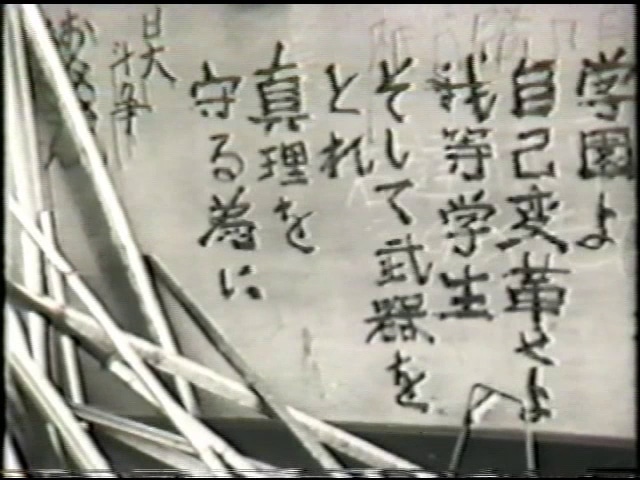 学園よ
自己変革せよ
我等学生
そして武器を
とれ
真理を
守る為に
日大
斗争